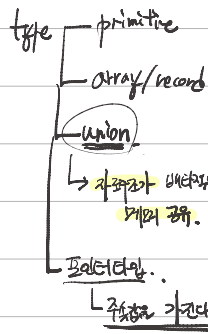 type
primitive
array/record
union
자료구조가
메모리 공유.
포인터타입.
주소값을 가진다